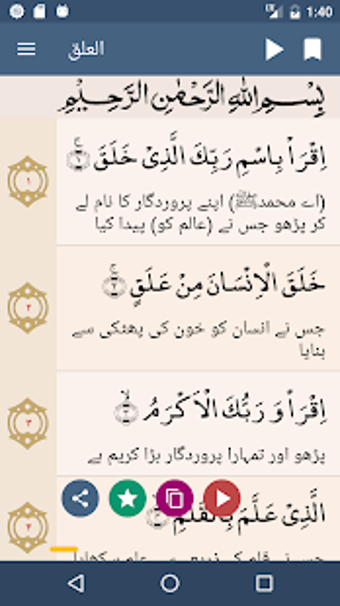 1:40
العلق
بِسْمِ اللهِ الرَّحْمٰنِ الرَّحِيْمِ
اِقْرَاْ بِاسْمِ رَبِّكَ الَّذِیْ خَلَقَۚ ۝۱
(اے محمدﷺ) اپنے پروردگار کا نام لے
کر پڑھو جس نے (عالم کو) پیدا کیا
۱
خَلَقَ الْاِنْسَانَ مِنْ عَلَقٍۚ ۝۲
جس نے انسان کو خون کی پھٹکی سے
بنایا
۲
اِقْرَاْ وَ رَبُّكَ الْاَكْرَمُۙ ۝۳
پڑھو اور تمہارا پروردگار بڑا کریم ہے
۳
الَّذِیْ عَلَّمَ بِالْقَلَمِۙ ۝۴
جس نے قلم کے ذریعے سے علم سکھایا
۴